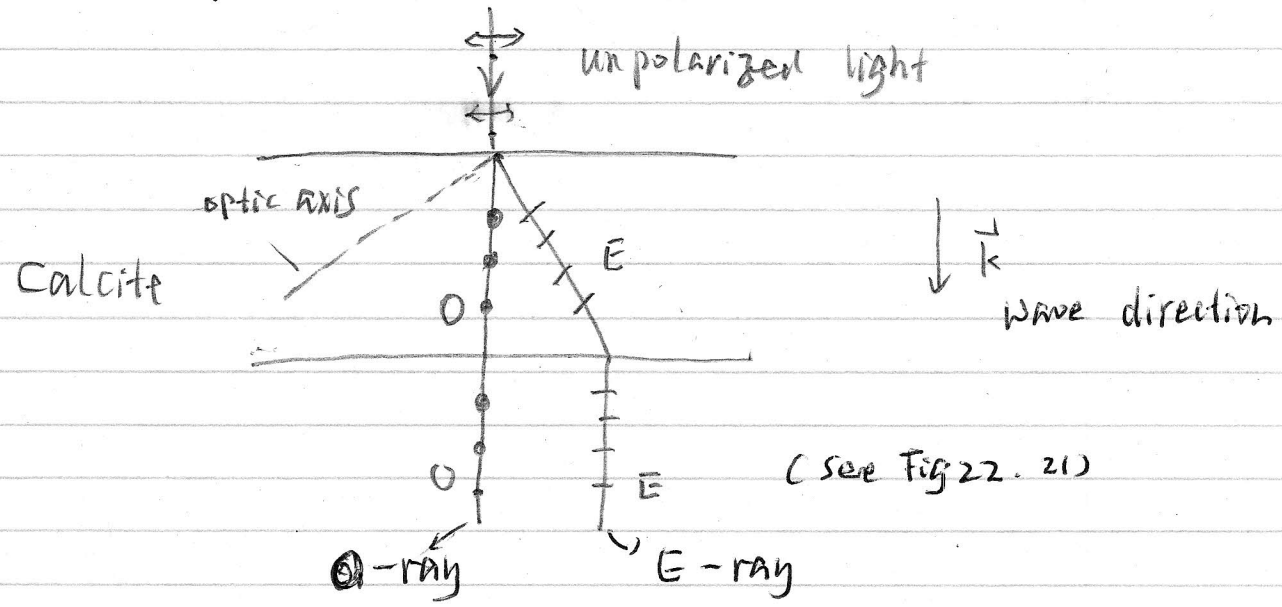 unpolarized light
optic axis
E
k
Calcite
O
wave direction
O
E
(see Fig 22. 21)
O-ray
E-ray